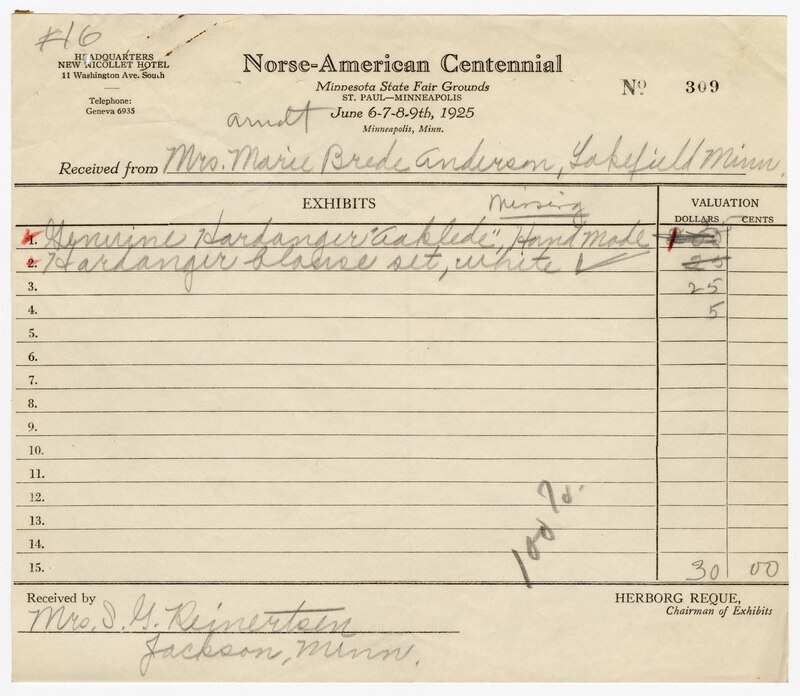 #16
HEADQUARTERS
NEW NICOLLET HOTEL
11 Washington Ave. South
Telephone:
Geneva 6935
Norse-American Centennial
Minnesota State Fair Grounds
ST. PAUL—MINNEAPOLIS
June 6-7-8-9th, 1925
Minneapolis, Minn.
No 309
arndt
Received from Mrs. Marie Brede Anderson, Lakefield Minn.
EXHIBITS missing VALUATION
DOLLARS CENTS
1. Genuine Hardanger "Aaklede", Hand Made
2. Hardanger blouse set, white ✓ 25
3. 25
4. 5
5.
6.
7.
8.
9.
10.
11.
12.
13.
14.
15. 30 00
100%
Received by
Mrs. S. G. Reinertsen
Jackson, Minn.
HERBORG REQUE,
Chairman of Exhibits